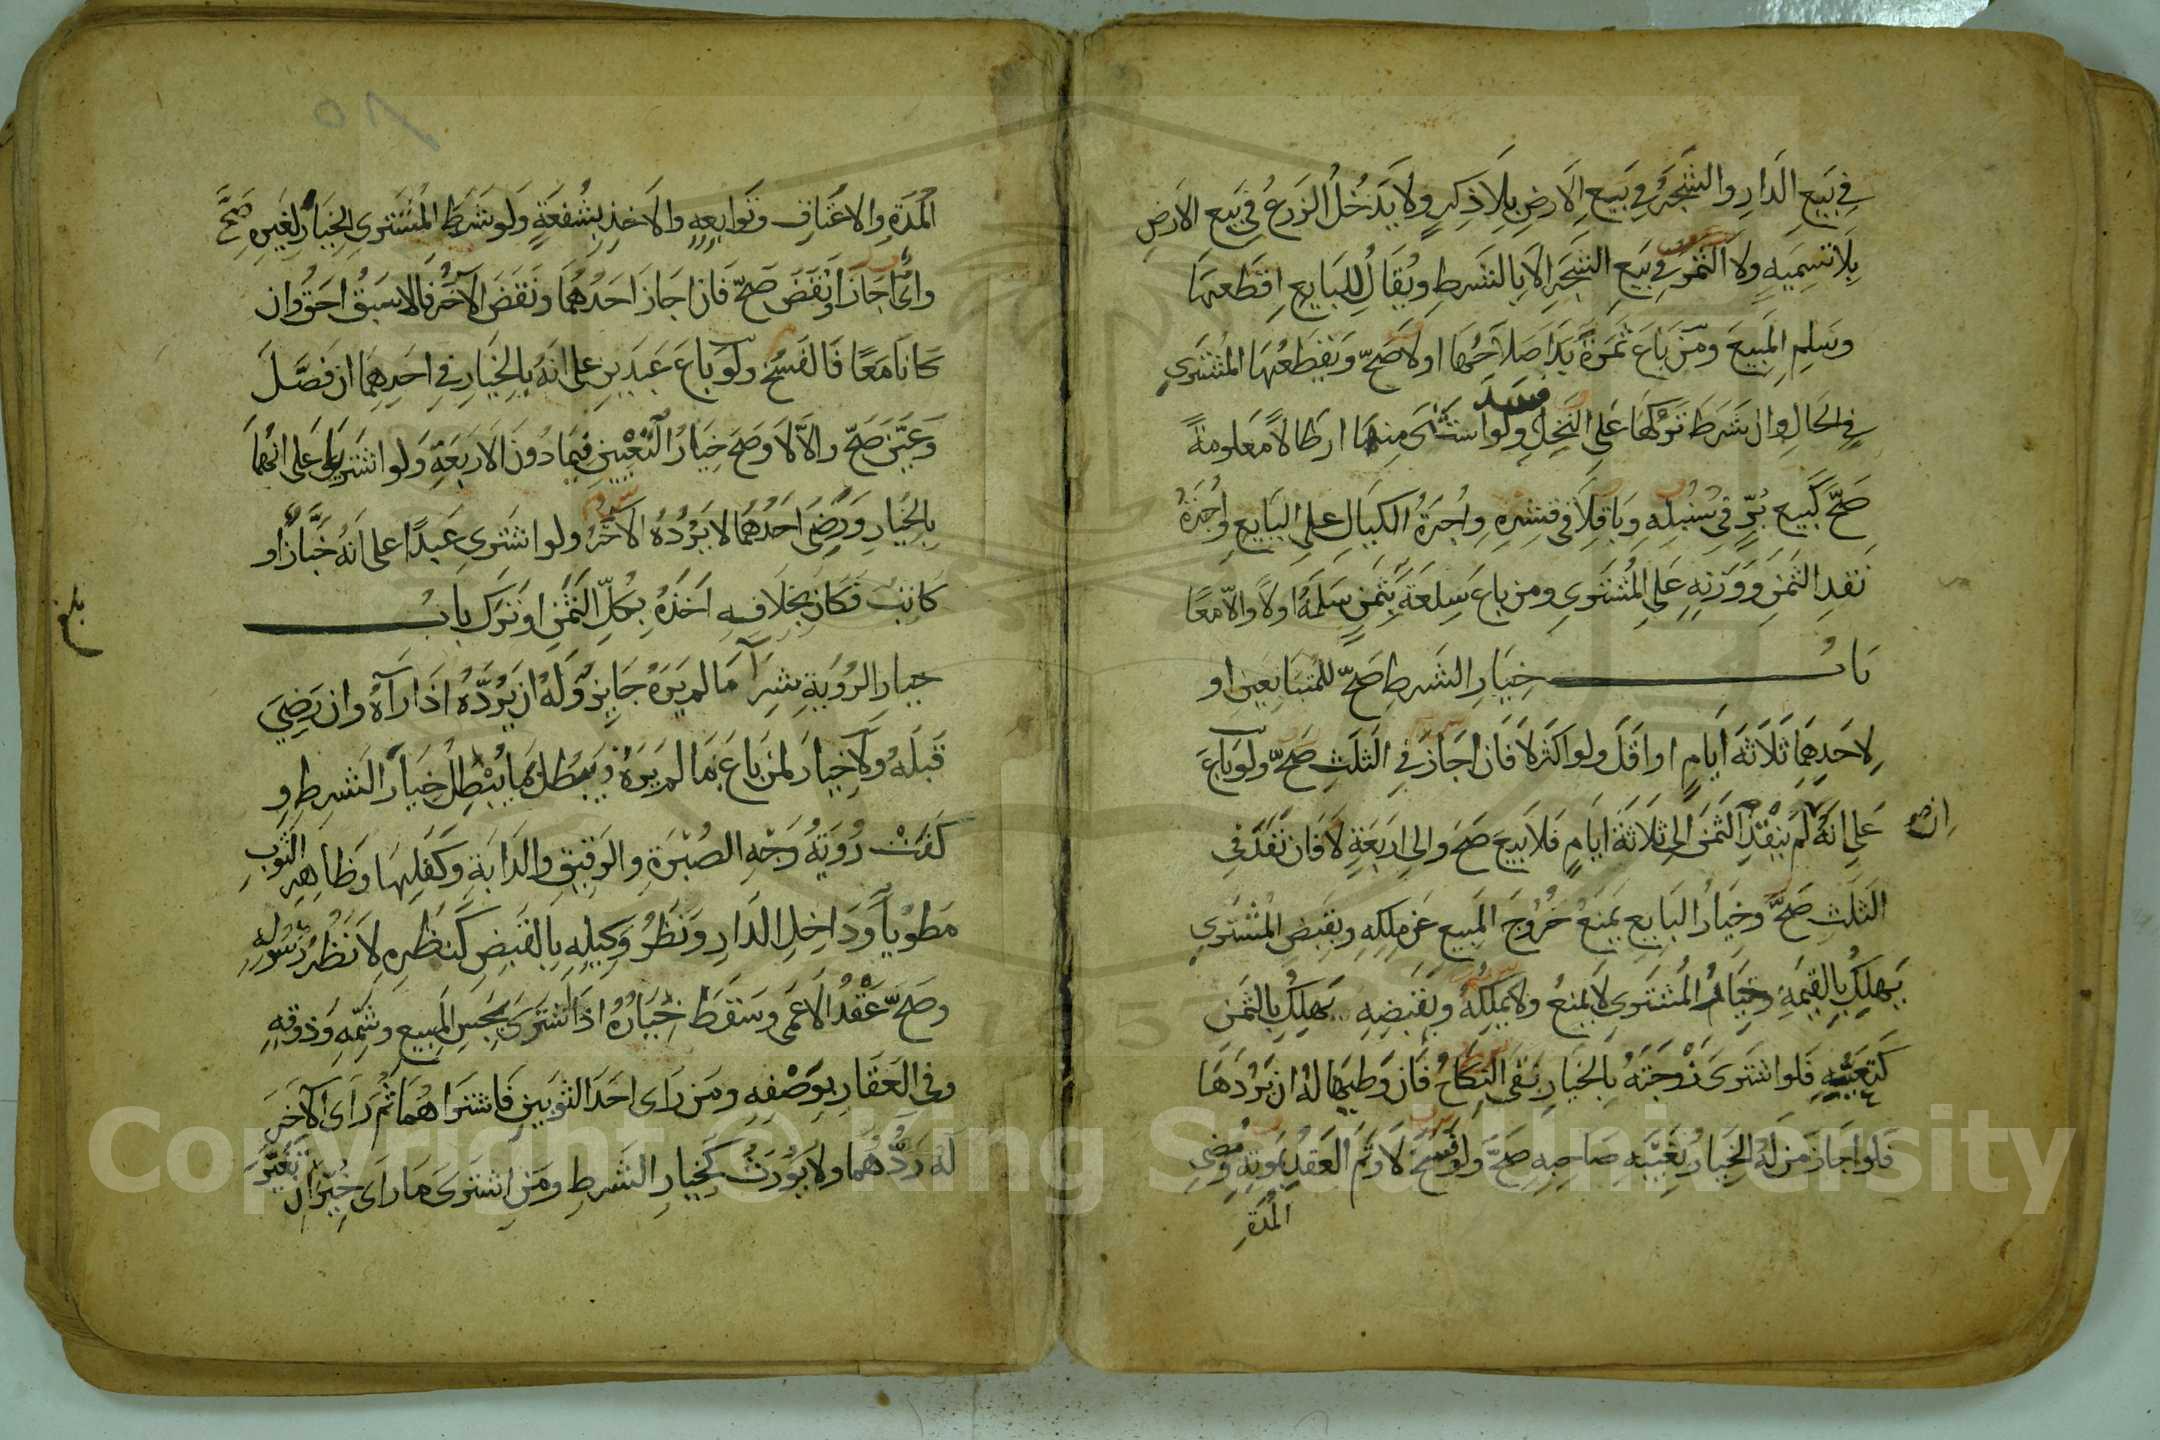 في بيع الدار والشجر في بيع الارض بلا ذكر ولا يدخل الزرع في بيع الارض
بلا تسمية ولا الثمر في بيع الشجر الا بالشرط ويقال للبايع اقطعها
وسلم المبيع ومن باع ثمرة بدا صلاحها او لا صح ويقطعها المشتري
في الحال وان شرط تركها على النخل فسد ولو استثنى منها ارطالا معلومة
صح كبيع بر في سنبله وباقلا في قشره واجرة الكيال على البايع واجرة
نقد الثمن ووزنه على المشتري ومن باع سلعة بثمن سلمه اولا والا معا
باب خيار الشرط صح للمتبايعين او
لاحدهما ثلاثة ايام او اقل ولو اكثر لا فان اجاز في الثلث صح ولو باع
على انه لم ينقد الثمن الى ثلاثة ايام فلا بيع صح والى اربعة لا فان نقد في
ان
الثلث صح وخيار البايع يمنع خروج المبيع عن ملكه وبقبض المشتري
يهلك بالقيمة وخيار المشتري لا يمنع ولا يملكه وبقبضه يهلك بالثمن
كتعيبه فلو اشترى زوجته بالخيار بقي النكاح فان وطيها له ان يردها
فلو اجاز من له الخيار بغيبة صاحبه صح ولو فسخ لا وتم العقد بموته ومضي
المدة
٨٥
المدة والاعتاق وتوابعه والاخذ بشفعة ولو شرط المشتري الخيار لغيره صح
واي اجاز او نقض صح فان اجاز احدهما ونقض الاخر فالاسبق احق وان
كانا معا فالفسخ ولو باع عبدين على انه بالخيار في احدهما ان فصل
وعين صح والا لا وصح خيار التعيين فيما دون الاربعة ولو اشتريا على انهما
بالخيار ورضي احدهما لا يرده الاخر ولو اشترى عبدا على انه خباز او
كاتب فكان بخلافه اخذه بكل الثمن او ترك باب
بلغ
خيار الروية شرآ ما لم يره جايز وله ان يرده اذا رآه وان رضي
قبله ولا خيار لمن باع ما لم يره ويبطل بما يبطل خيار الشرط و
كفت روية وجه الصبرة والرقيق والدابة وكفلها وظاهر الثوب
مطويا وداخل الدار ونظر وكيله بالقبض كنظره لا نظر رسوله
وصح عقد الاعمى وسقط خياره اذا اشترى بجس المبيع وشمه وذوقه
وفي العقار بوصفه ومن راى احد الثوبين فاشتراهما ثم راى الاخر
له ردهما ولا يورث كخيار الشرط ومن اشترى ما راى خير ان تغير
Copyright © King Saud University